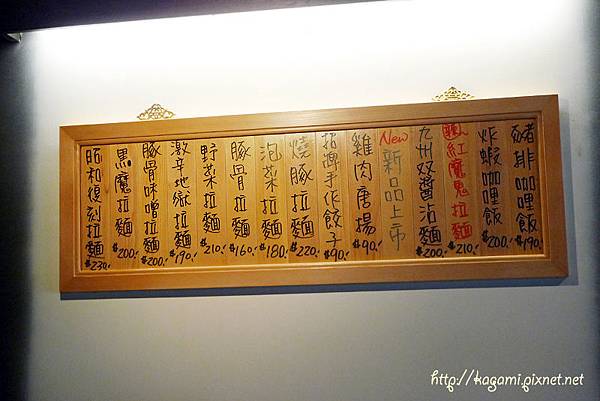 豬排咖哩飯 $190.
炸蝦咖哩飯 $200.
紅魔鬼拉麵 $210.
九州双醬沾麵 $200.
New 新品上市
雞肉唐揚 $90.
招牌手作餃子 $90.
燒豚拉麵 $220.
泡菜拉麵 $180.
豚骨拉麵 $160.
野菜拉麵 $210.
激辛地獄拉麵 $190.
豚骨味噌拉麵 $200.
黑魔拉麵 $200.
昭和復刻拉麵 $230.
http://kagami.pixnet.net